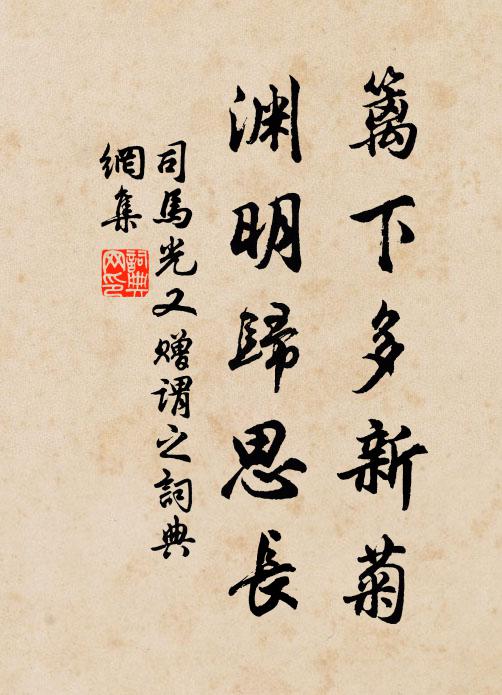 籬下多新菊
渊明歸思長
司馬光又贈謂之詞典
網集
詞典
网印